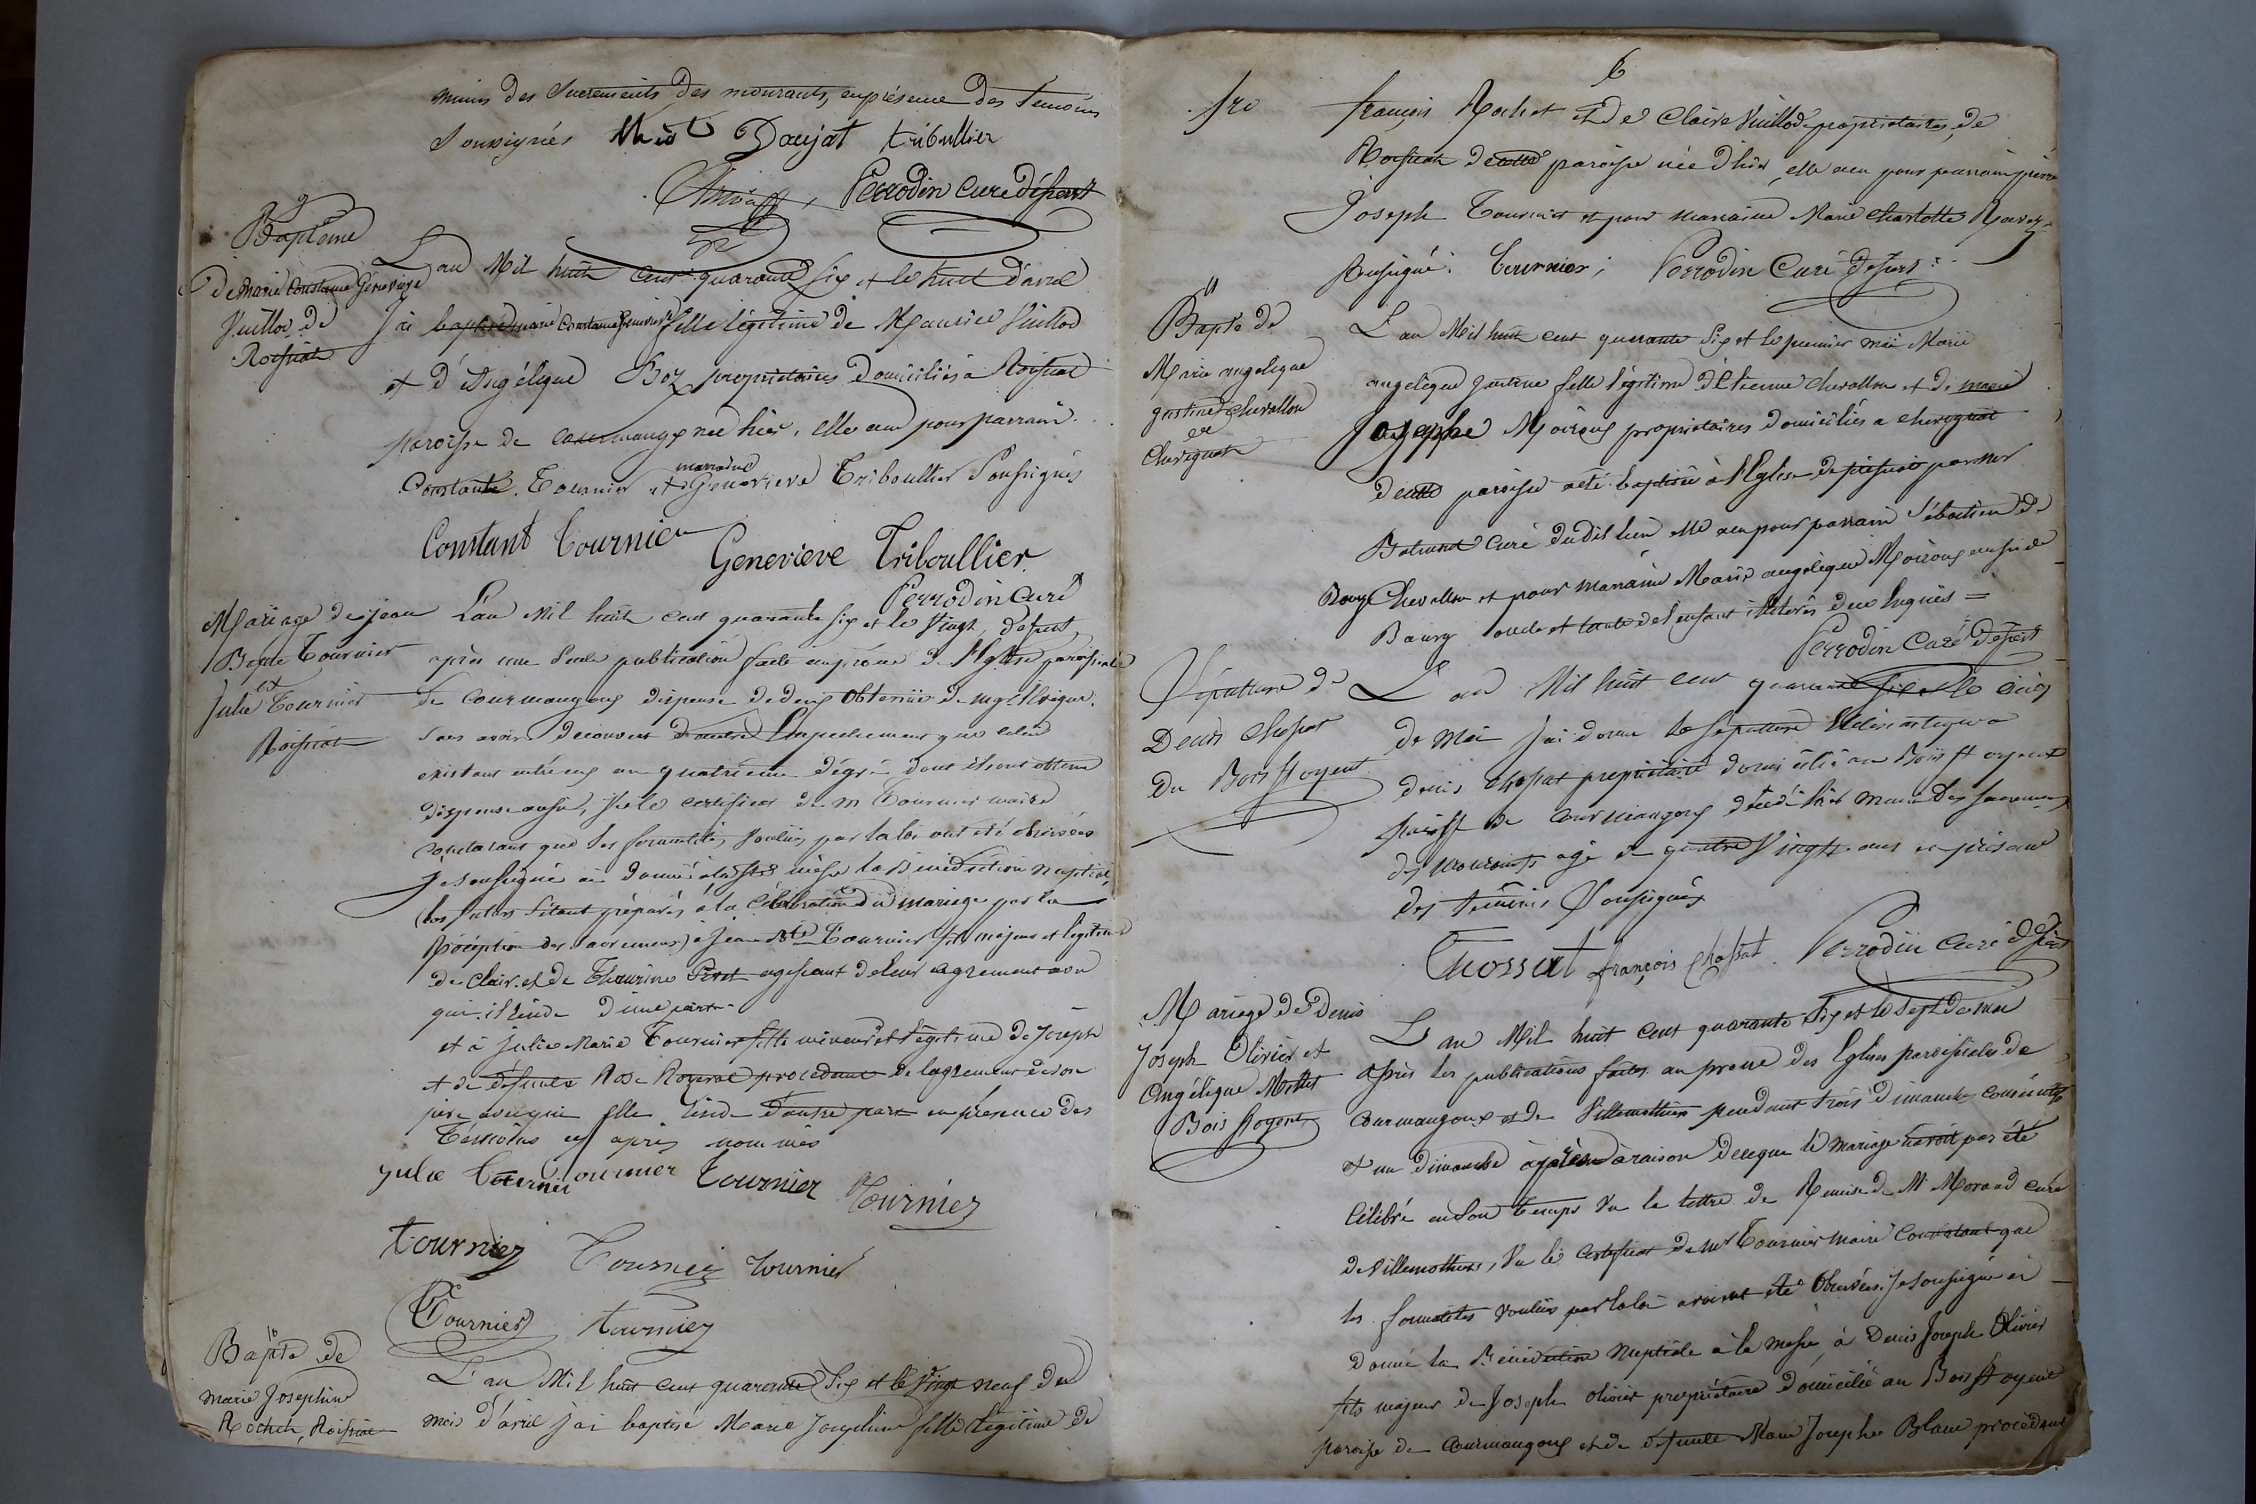 munis des Sacrements des mourants, en présence des temoins
Soussignés Doujat tribullier
Perrodin Curé désert
9
Baptême
de marie Constance Genevieve
Vuillod de
Roissiat
L'an Mil huit cent quarante six et le huit d'avril
J'ai baptisé marie Constance Genevieve fille légitime de Maurice Vuillod
et d'Angélique Boz propriétaires domiciliés à Roissiat
paroisse de courmangoux née hier, elle a eu pour parrain
Constant Tournier et marraine Genevieve Triboullier Soussignés
Constant Tournier Genevieve Triboullier
Perrodin curé
Mariage de jean
Bapte Tournier
et
Julie Tournier
Roissiat
L'an Mil huit cent quarante six et le vingt
après une Seule publication faite au prône de l'Eglise paroissiale
de courmangoux dispense de deux obtenüe de mgr l'Evêque.
Sans avoir découvert d'autre Empechement que celui
existant entre eux au quatrieme dégré, dont ils ont obtenu
dispense aussi, vu le certificat de m Tournier maire
constatant que les formalités voulües par la loi ont été observées
Je soussigné ai donné à la Ste messe la Bénédiction nuptiale,
(les futurs s'étant préparés à la Célébration du mariage par la
Réception des sacremens) à Jean Bte Tournier fils majeur et légitime
de Clair et de Thaurine Piret agissant de leur agrement avec
qui il réside d'une part
et à julie Marie Tournier fille mineure et légitime de Joseph
et de défunte Rose procédant de l'agrement de son
pere avec qui elle réside d'autre part en présence des
Témoins cy après nommés
Julie Tournier ournier Tournier Tournier
tournier Tournier tournier
Tournier tournier
10
Bapte de
marie Josephine
Rochet, Roissiat
L'an Mil huit cent quarante Six et le vingt neuf du
mois d'avril j'ai baptisé Marie Josephine fille légitime de
6
françois Rochet et de Claire Vuillod propriétaires, de
Roissiat de cette paroisse née d'hier, elle a eu pour parrain pierre
Joseph Tournier et pour marraine Marie Charlotte
Soussigné: Tournier; Perrodin Curé desert
11
Bapte de
Marie angelique
justine Chevallon
de
Chevignat
L'an Mil huit cent quarante Six et le premier mai Marie
angelique justine fille légitime d'Etienne Chevallon et de marie
Josephe Moiroux propriétaires domiciliés a chevignat
de cette paroisse a été baptisée à l'Eglise de par Mr
curé du dit lieu elle a eu pour parrain Sébastien de
Chevallon et pour marraine Marie angelique Moiroux aussi de
oncle et tante de l'enfant illitérés de ce Enquis =
Perrodin Curé desert
Sépulture de
Denis Chossat
Du Bois St oyent
L'an Mil huit cent quarante six et le cinq
de Mai j'ai donné la sépulture Ecclésiastique a
denis Chossat propriétaire domicilié au Bois St oyent
paroisse de Courmangoux décédé hier muni des sacremens
des mourants agé de quatre Vingt ans en présence
des temoins Soussignés
Chossat françois Chossat Perrodin Curé desert
Mariage de Denis
Joseph Olivier et
Angélique Mottet
Bois St oyent
L'an Mil huit cent quarante Six et le Sept de mai
après les publications faites au prone des Eglises paroissiales de
Courmangoux et de Villemothier pendant trois Dimanches consécutifs
et un dimanche après à raison de ce que le mariage n'avoit pas été
Célébré en Son temps Vu la lettre de Remise de Mr Morand curé
de Villemothier, Vu le certificat de Mr Tournier Maire Constatant que
les formalités voulües par la loi avoient été Observées. Je soussigné ai
donné la Bénédiction Nuptiale à la messe, à Denis Joseph Olivier
fils majeur de Joseph Olivier propriétaire domicilié au Bois St oyent
paroisse de Courmangoux et de défunte Marie Josephe Blanc procédant